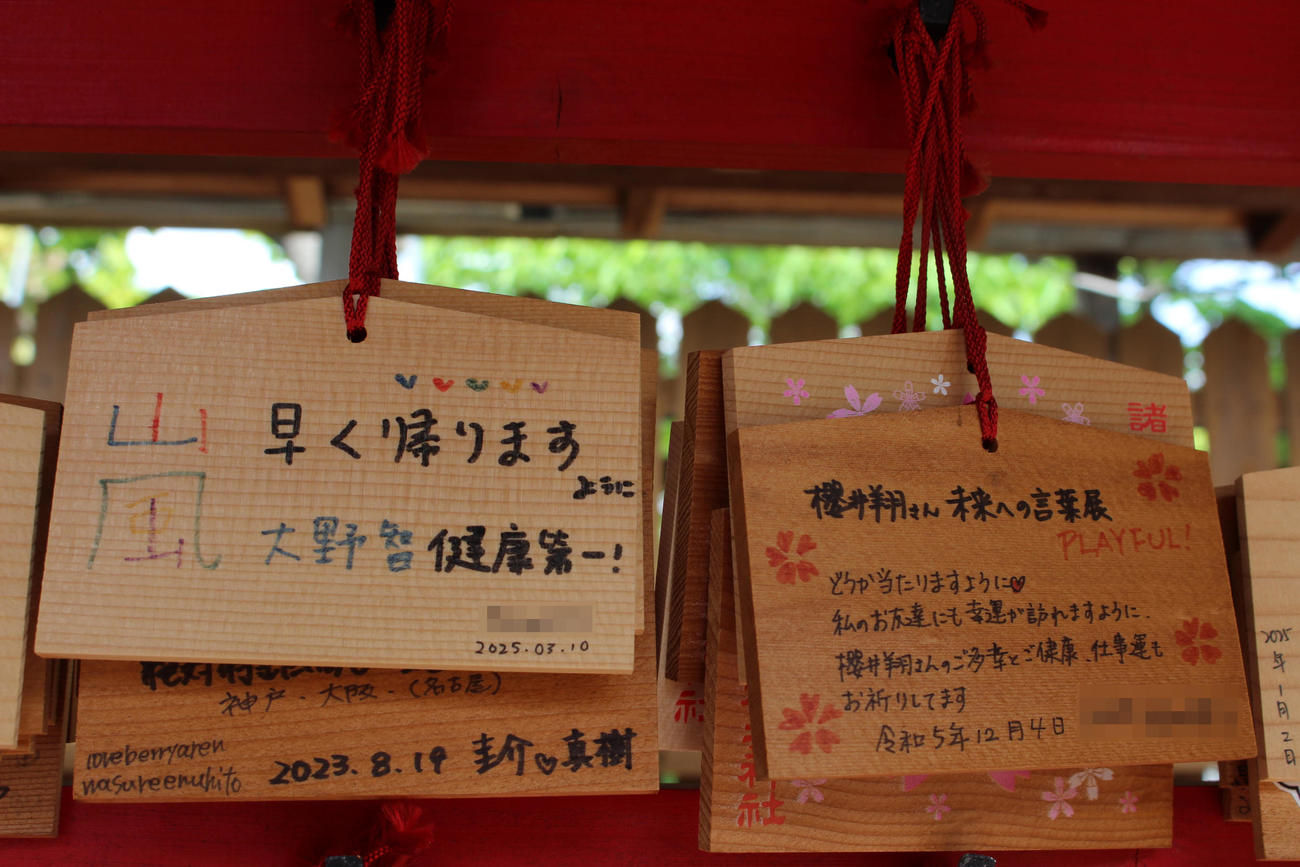 嵐
早く帰ります
ように
大野智 健康第一!
2025.03.10
神戸・大阪・(名古屋)
loveberryaren
2023.8.19 圭介♡真樹
諸
櫻井翔さん 未来への言葉展
PLAYFUL!
どうか当たりますように♡
私のお友達にも幸運が訪れますように、
櫻井翔さんのご多幸とご健康、仕事運も
お祈りしてます
令和5年12月4日
社
社
2025
年
1
月
2
日